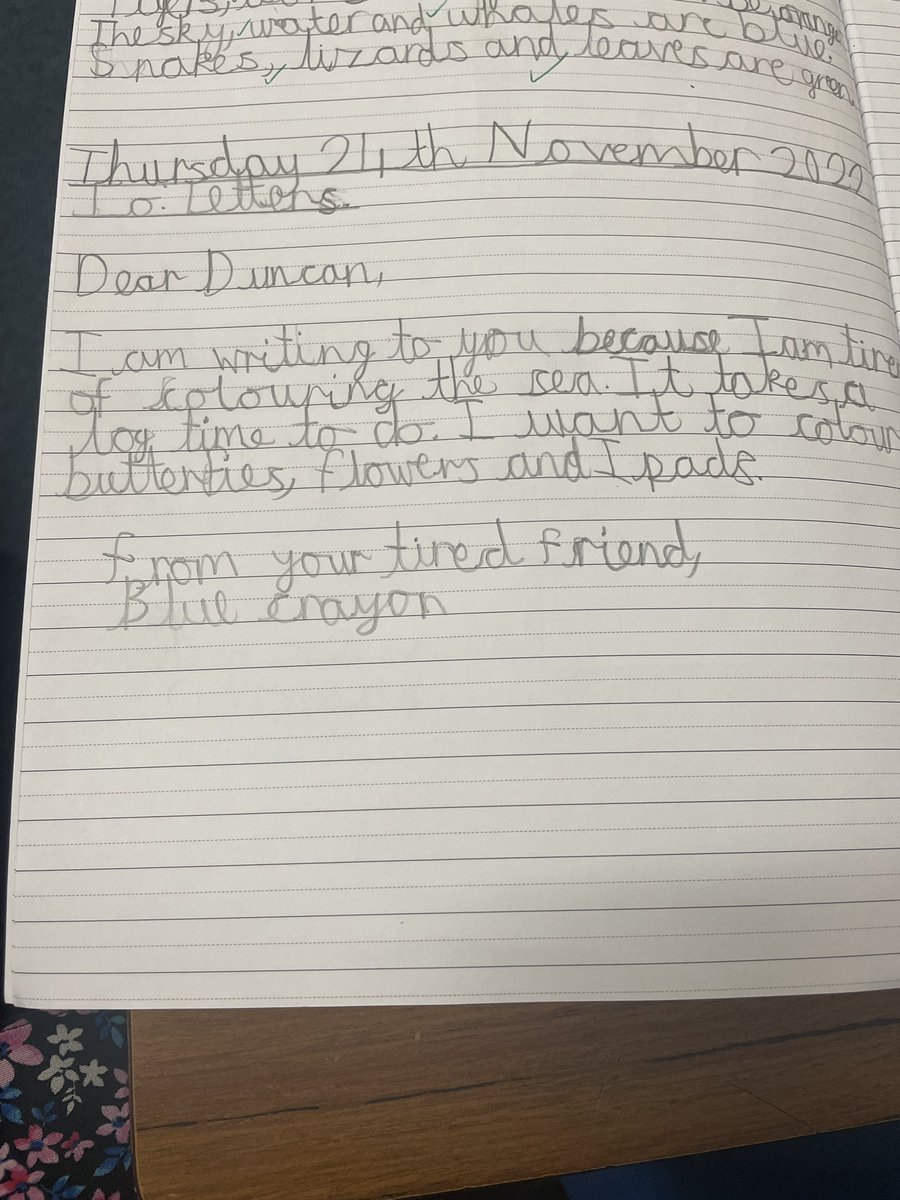 Tigers, be orange
The sky, water and whales are blue.
Snakes, lizards and leaves are green.
Thursday 24th November 2022
Letters.
Dear Duncan,
I am writing to you because I am tired
of colouring the sea. It takes a
log time to do. I want to colour
butterfies, flowers and I pads.
from your tired friend,
Blue crayon